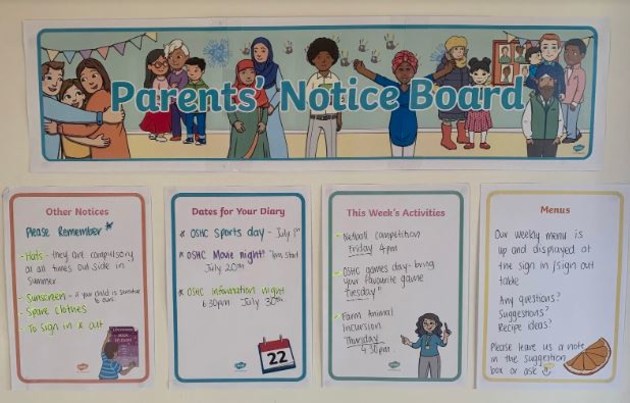 Parents' Notice Board
Other Notices
Please Remember *
- Hats - they are compulsory
at all times out side in
Summer
- Sunscreen - if your child is sensitive
to ours
- Spare clothes
- To sign in & out
Dates for Your Diary
* OSHC Sports day - July 1st
* OSHC Movie night! 7pm start
July 20th
* OSHC Information night
6:30pm July 30th
22
This Week's Activities
- Netball competition
Friday 4pm
- OSHC games day - bring
your favourite game
Tuesday"
- Farm Animal
Incursion
Thursday
4:30pm
Menus
Our weekly menu is
up and displayed at
the sign in/sign out
table
Any questions?
Suggestions?
Recipe ideas?
Please leave us a note
in the suggestion
box or ask